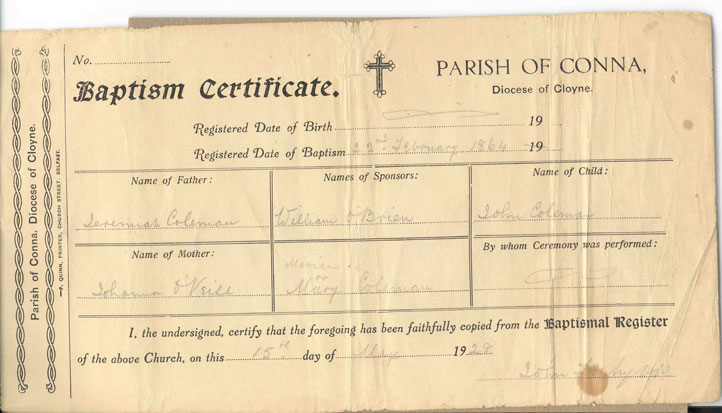 No.
Baptism Certificate.
PARISH OF CONNA,
Diocese of Cloyne.
Registered Date of Birth 19
Registered Date of Baptism 22nd February 1864 19
Name of Father:
Names of Sponsors:
Name of Child:
Jeremiah Coleman
William O'Brien
John Coleman
Name of Mother:
By whom Ceremony was performed:
or
Johanna O'Neill
Mary Coleman
I, the undersigned, certify that the foregoing has been faithfully copied from the Baptismal Register
of the above Church, on this 15th day of May 1928
John
Parish of Conna, Diocese of Cloyne.
—P. QUINN, PRINTER, CHURCH STREET, BELFAST.